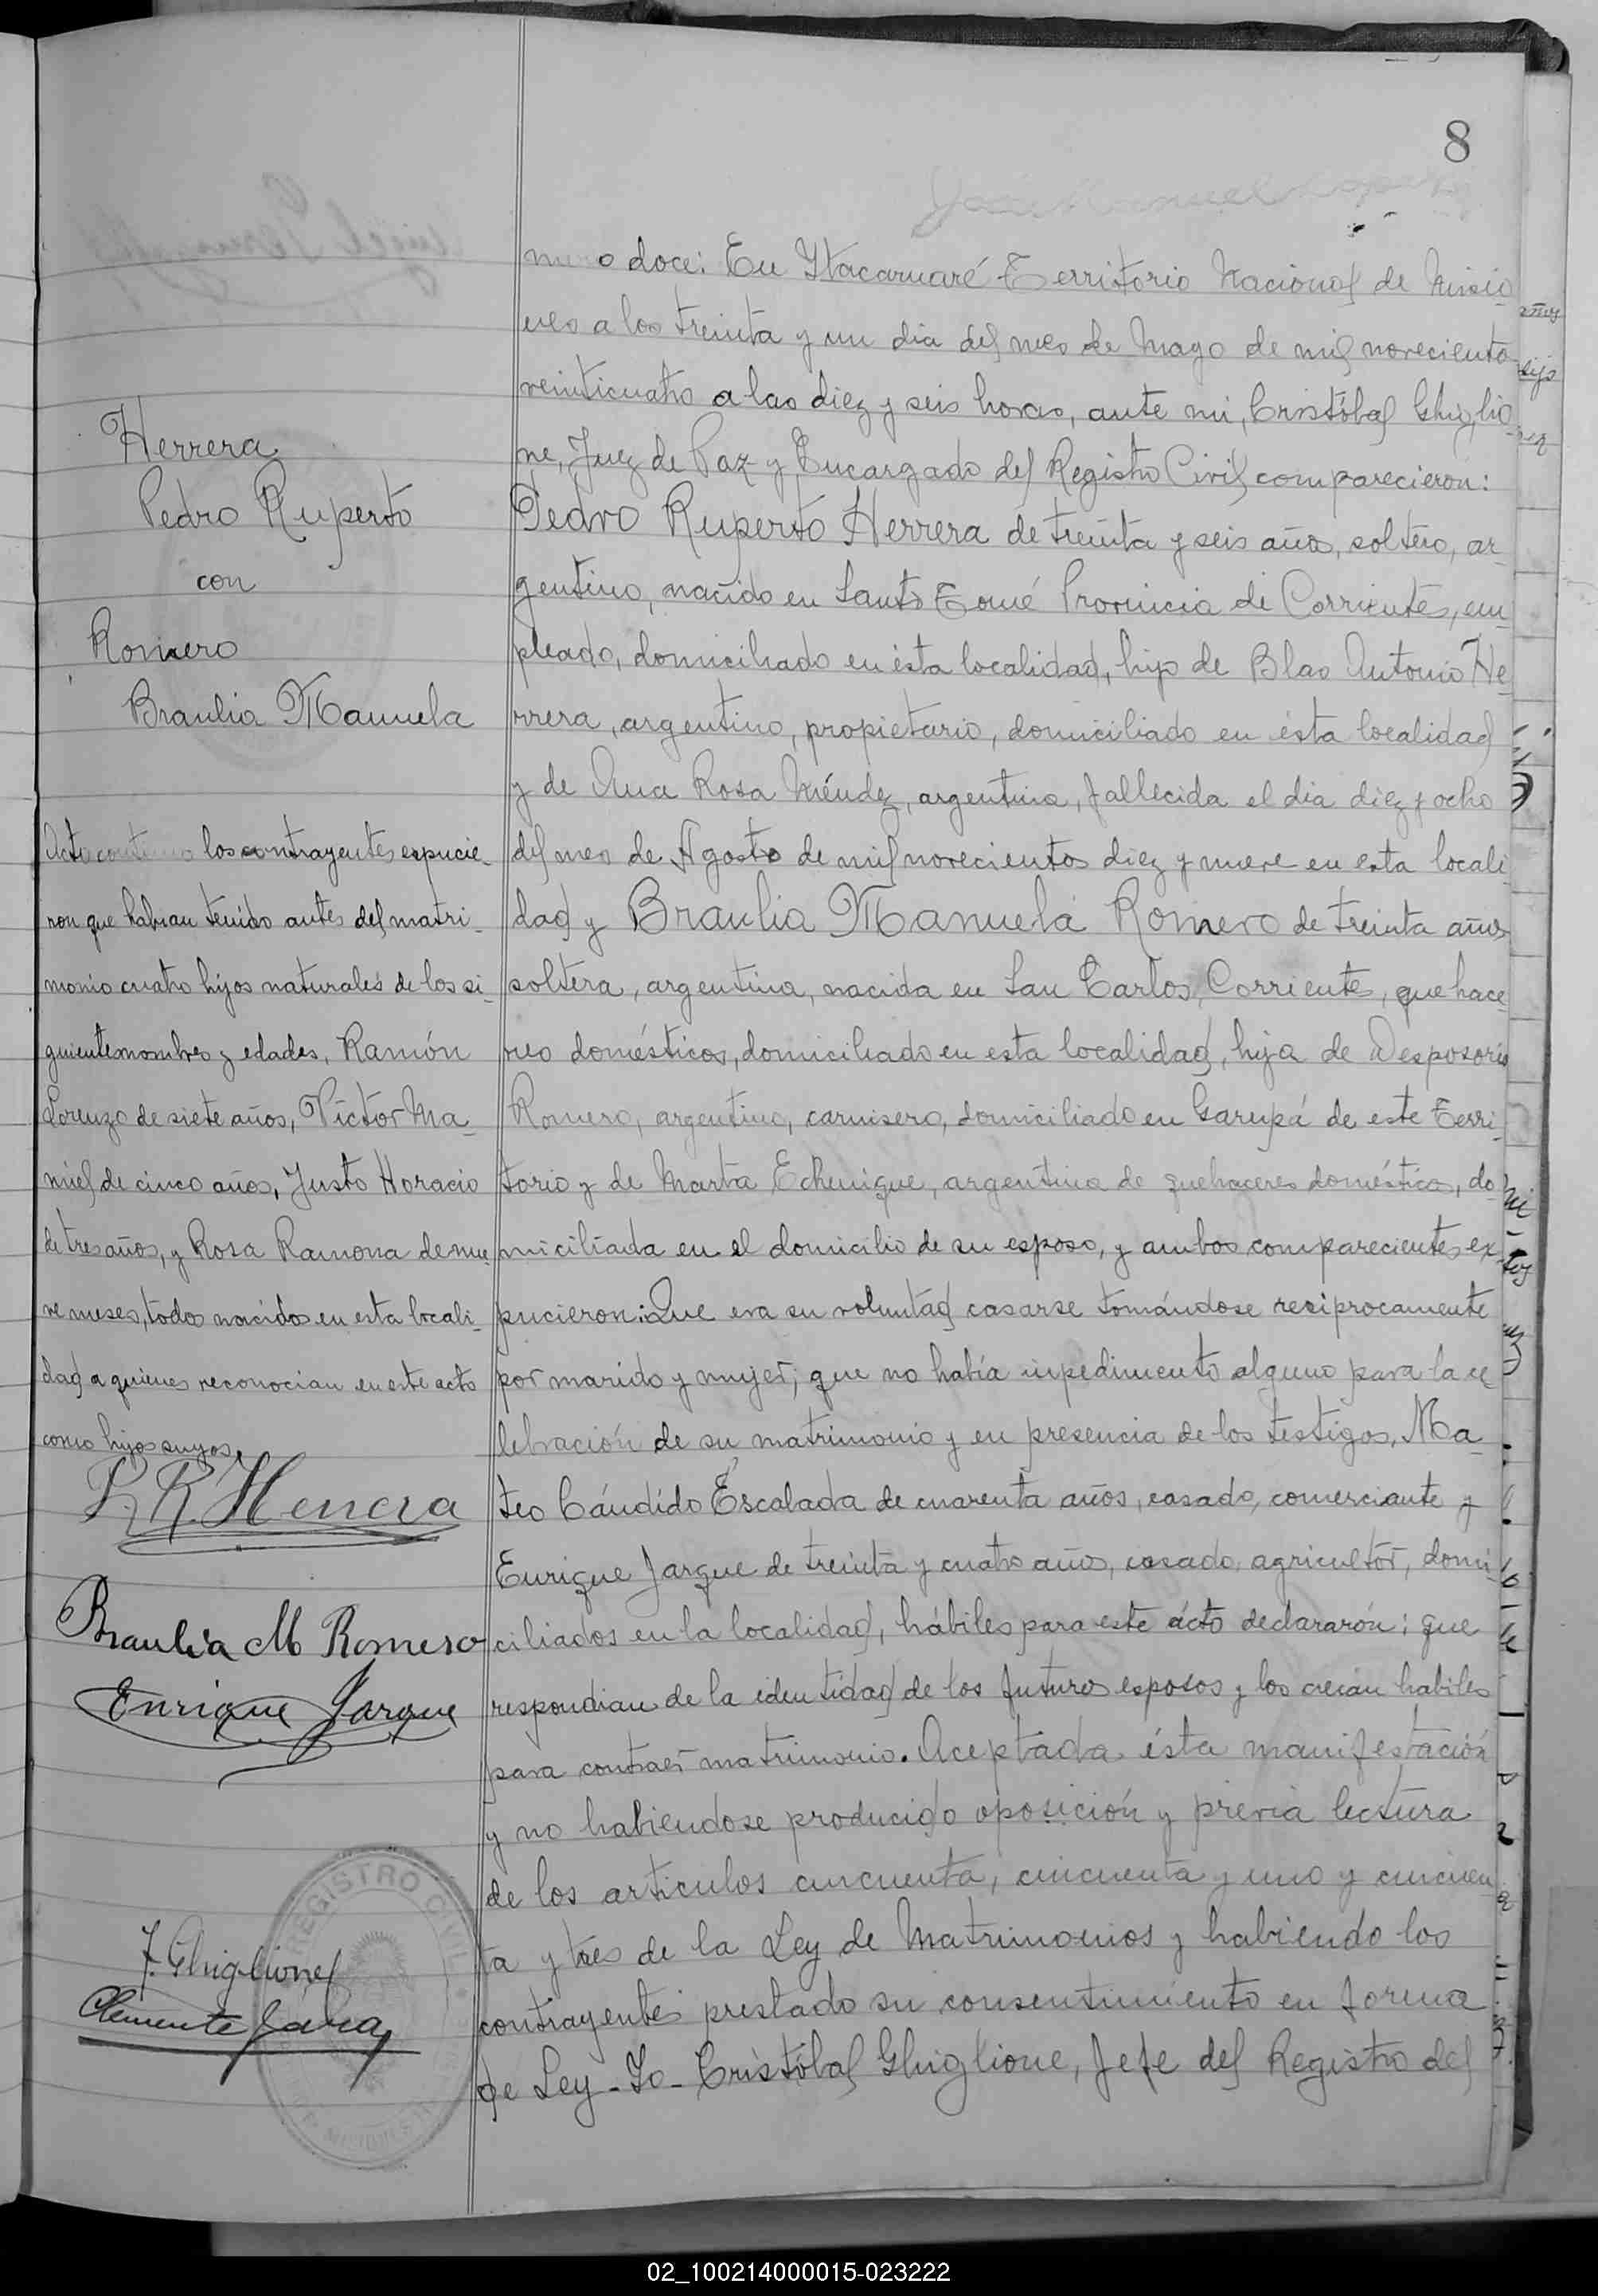 8
mero doce: En Ytacaruaré Territorio Nacional de Misio-
nes a los treinta y un dia del mes de Mayo de mil novecientos
veinticuatro a las diez y seis horas, ante mi, Cristóbal Ghiglio-
ne, Juez de Paz y Encargado del Registro Civil, comparecieron:
Pedro Ruperto Herrera de treinta y seis años, soltero, ar-
gentino, nacido en Santo Tomé Provincia de Corrientes, em-
pleado, domiciliado en ésta localidad, hijo de Blas Antonio He-
rrera, argentino, propietario, domiciliado en ésta localidad
y de Ana Rosa Méndez, argentina, fallecida el dia diez y ocho
del mes de Agosto de mil novecientos diez y nueve en esta locali-
dad y Braulia Manuela Romero de treinta años
soltera, argentina, nacida en San Carlos, Corrientes, quehace-
res domésticos, domiciliada en esta localidad, hija de Desposorio
Romero, argentino, carnisero, domiciliado en Garupá de este Terri-
torio y de Marta Echenique, argentina de quehaceres domésticos, do-
miciliada en el domicilio de su esposo, y ambos comparecientes ex-
pucieron: Que era su voluntad casarse tomándose reciprocamente
por marido y mujer; que no había impedimento alguno para la ce-
lebración de su matrimonio y en presencia de los testigos, Ma-
teo Cándido Escalada de cuarenta años, casado, comerciante y
Enrique Jarque de treinta y cuatro años, casado, agricultor, domi-
ciliados en la localidad, hábiles para este ácto declararón; que
respondian de la identidad de los futuros esposos y los creian habiles
para contraer matrimonio. Aceptada ésta manifestación
y no habiendose producido oposición y previa lectura
de los articulos cincuenta, cincuenta y uno y cincuen-
ta y tres de la Ley de Matrimonios y habiendo los
contrayentes prestado su consentimiento en forma
de Ley - Yo - Cristóbal Ghiglione, Jefe del Registro del
Herrera
Pedro Ruperto
con
Romero
Braulia Manuela
Acto continuo los contrayentes expucie-
ron que habian tenido antes del matri-
monio cuatro hijos naturales de los si-
guientes nombres y edades, Ramón
Lorenzo de siete años, Víctor Ma-
nuel de cinco años, Justo Horacio
de tres años, y Rosa Ramona de nue-
ve meses, todos nacidos en esta locali-
dad a quienes reconocian en este acto
como hijos suyos.
P. R. Herrera
Braulia M Romero
Enrique Jarque
Ghiglione
Clemente
REGISTRO CIVIL
MISIONES
02_100214000015-023222